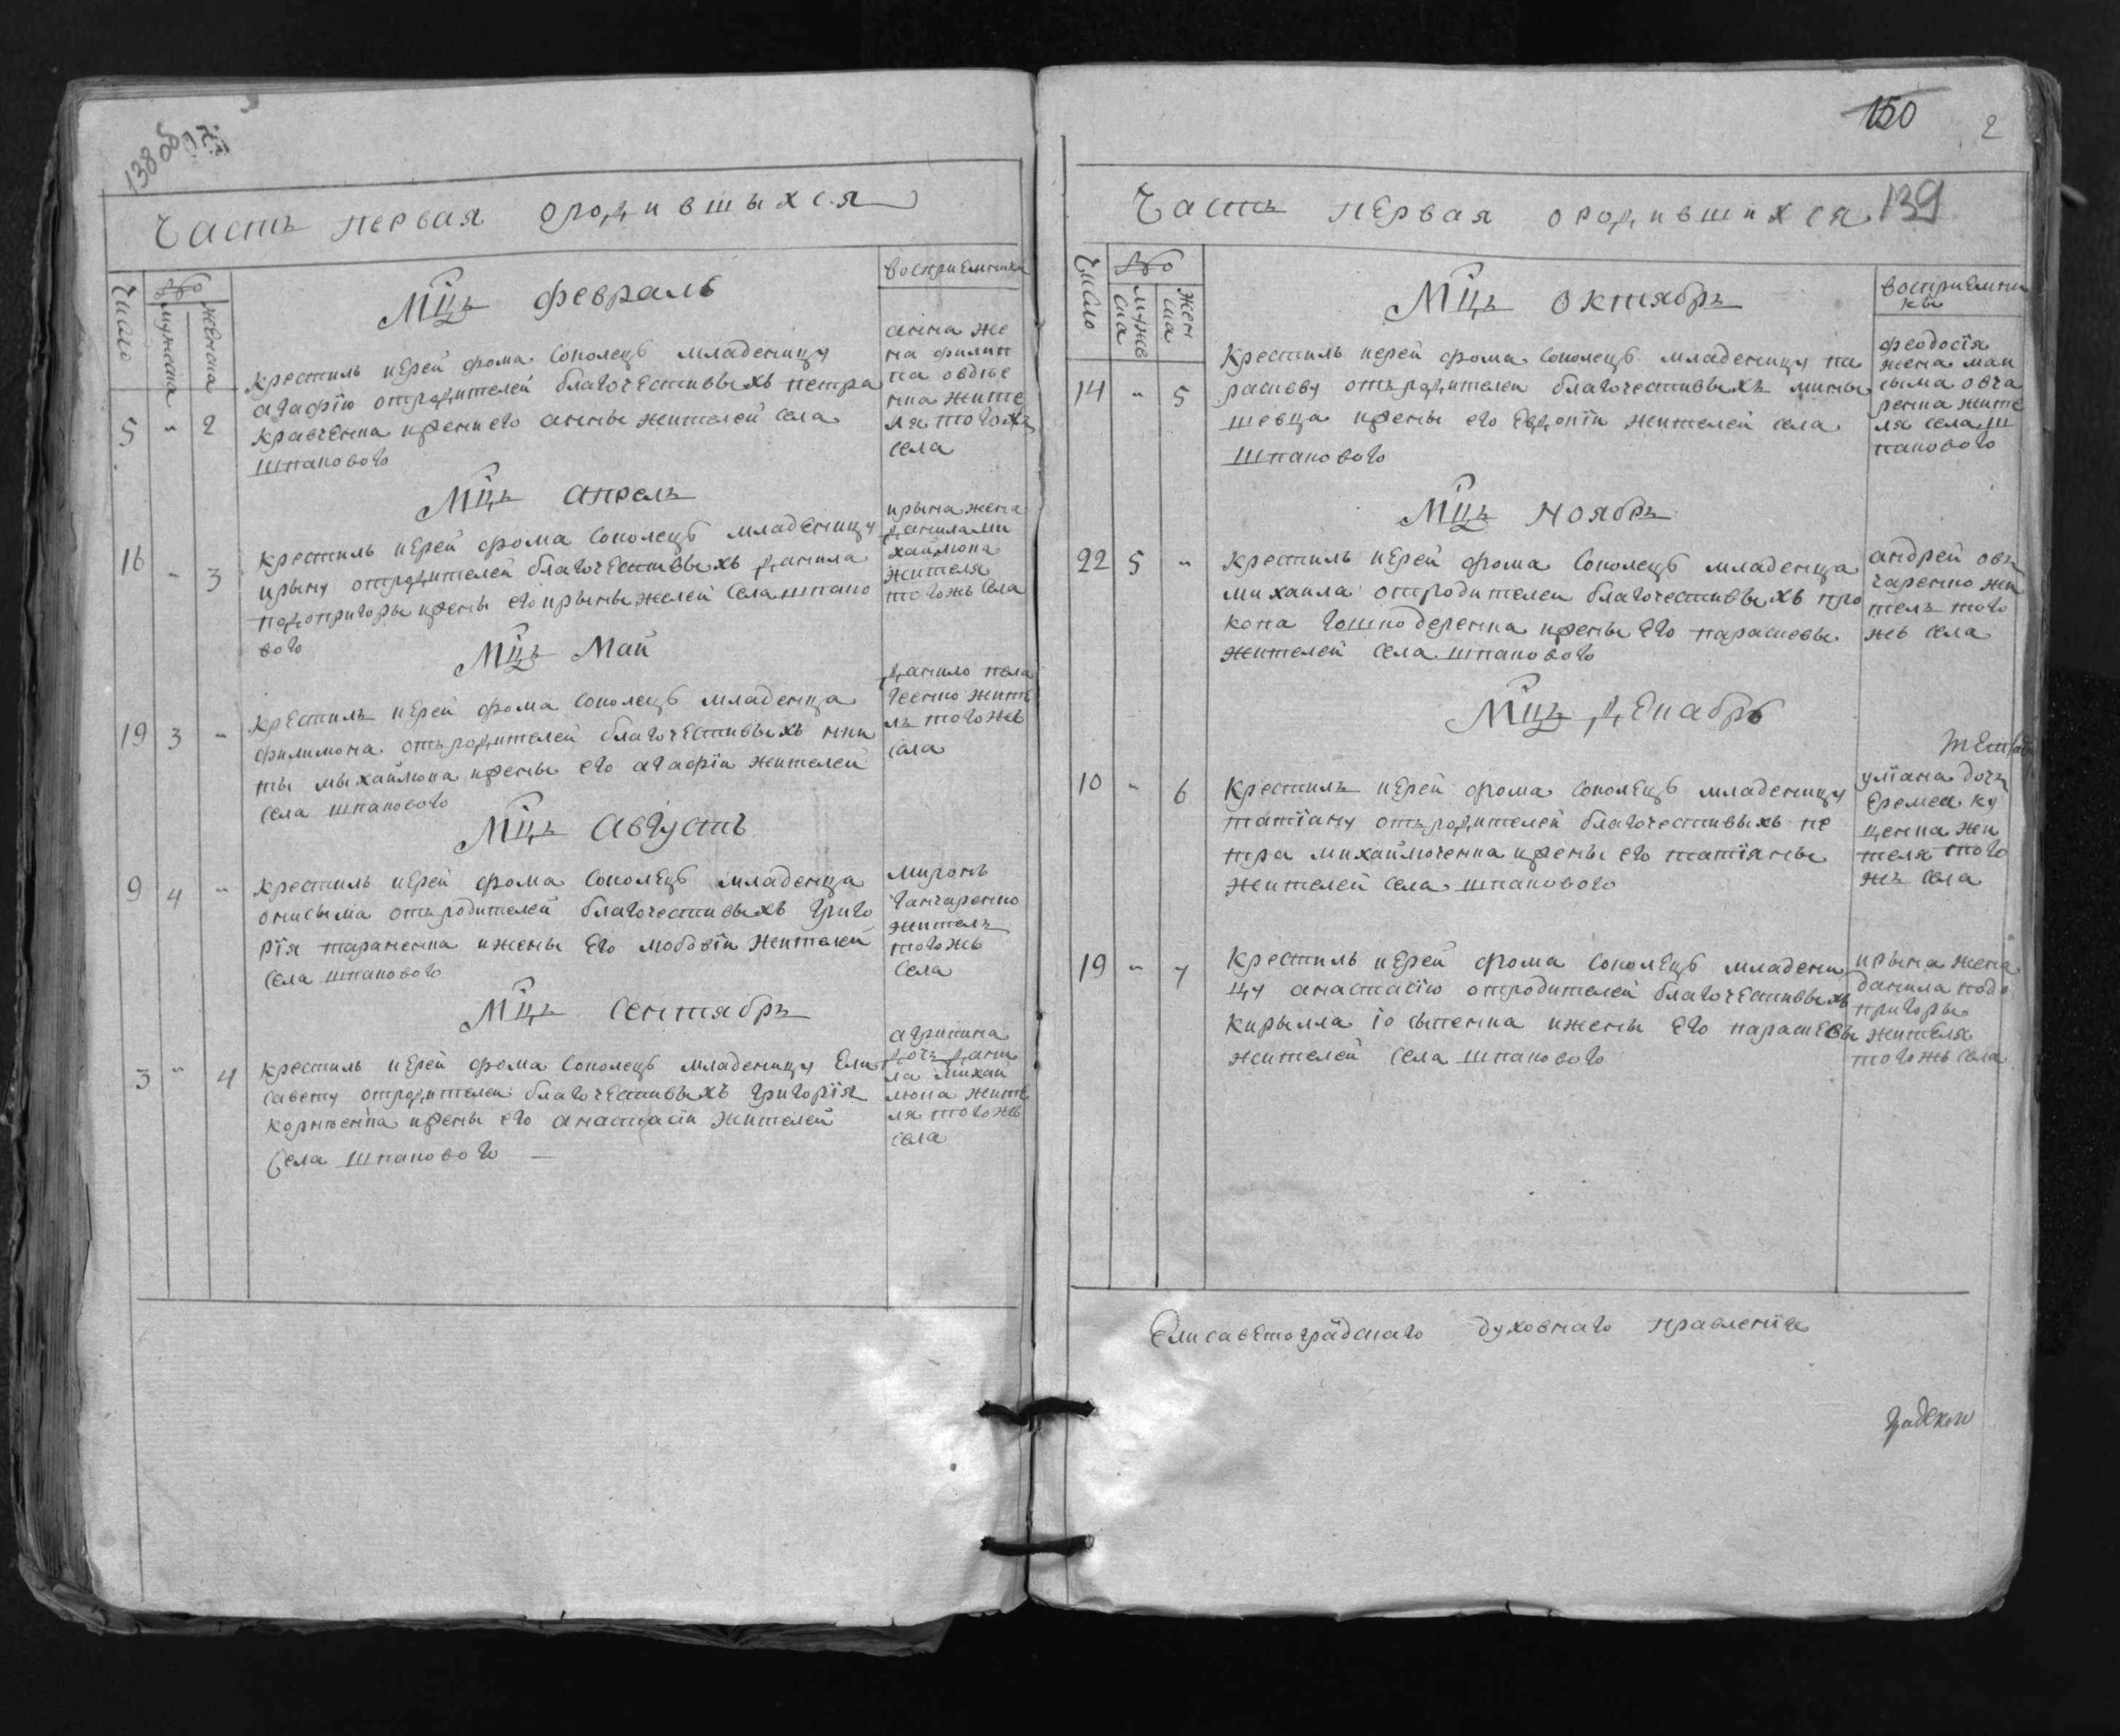 138 об
Часть первая ородившыхся
Число
№
мужеска
женска
восприемники
Мцъ февраль
5 " 2
крестилъ иерей фома Соколецъ младеницу
агафію отродителей благочестивыхъ петра
кравченка ижени его анны жителей села
шпакового
анна же
на филип
па овдіе
нка жите
ля тогожъ
села
Мцъ апрель
16 - 3
крестилъ иерей фома Соколецъ младеницу
ирыну отродителей благочестивыхъ данила
подопригоры ижены его ирыны желей Села шпако
вого
ирына жена
данила ми
хайлюка
жителя
тогожъ села
Мцъ Май
19 3 -
крестилъ иерей фома Соколецъ младенца
филимона отъродителей благочестивыхъ ники
ты мыхайлюка ижены его агафіи жителей
села шпакового
данило пела
жите
лъ тогожъ
села
Мцъ августъ
9 4 "
крестилъ иерей фома Соколецъ младенца
онисыма отъродителей благочестивыхъ григо
рія тараненка ижены Его любовіи жителей
села шпакового
миронъ
ганчаренко
житель
тогожъ
села
Мцъ Сентябрь
3 " 4
крестилъ иерей фома Соколецъ младеницу Ели
савету отродителей благочестивыхъ григорія
корніенка ижены его анастасіи жителей
Села шпакового
агрипина
дочь дани
ла михай
люка жите
ля тогожъ
села
150
2
139
Часть пЕрвая ородившихся
Число
№
муже
ска
жен
ска
восприемни
кы
Мцъ октябрь
14 " 5
крестилъ иерей фома Соколецъ младеницу па
раскеву отъродителей благочестивыхъ мины
шевца ижены его Евдокіи жителей села
шпакового
феодосія
жена мак
сыма овча
ренка жите
ля села ш
пакового
Мцъ Ноябрь
22 5 "
крестилъ иерей фома Соколецъ младенца
михаила отродителей благочестивыхъ про
копа гошкодеренка ижены Его параскевы
жителей села шпакового
андрей овъ
чаренко жи
тель того
жъ села
Мцъ дЕкабрь
10 " 6
крестилъ иерей фома Соколецъ младеницу
татіану отъродителей благочестивыхъ пе
тра михаймоченка ижены его татіаны
жителей села шпакового
уліана дочь
Еремеи ку
ценка жи
теля того
жъ села
19 " 7
крестилъ иерей фома Соколецъ младени
цу анастасію отродителей благочестивыхъ
кирылла іосыпенка ижены Его параскевы
жителей села шпакового
ирына жена
данила подо
пригоры
жителя
тогожъ села
Елисаветоградскаго духовнаго правленія